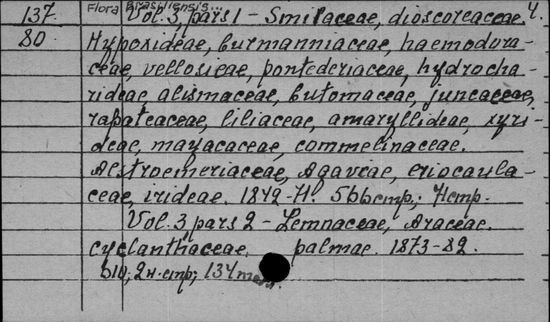 137. Flora Brasiliensis... 4.
80 Vol. 3, pars 1 - Smilaceae, dioscoreaceae,
Hypoxideae, burmanniaceae, haemodora-
ceae, vellosieae, pontederiaceae, hydrocha-
rideae, alismaceae, butomaceae, juncaceae,
rapateaceae, liliaceae, amaryllideae, xyri-
deae, mayacaceae, commelinaceae.
Alstroemeriaceae, Agaveae, eriocaula-
ceae, irideae. 1842-71. 566 стр.; 71 стр.
Vol. 3 pars 2 - Lemnaceae, Araceae.
cyclanthaceae. palmae. 1873-82.
610, 2 н. стр;